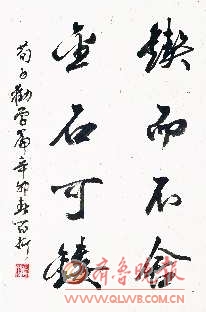 锲而不舍
金石可镂
荀子勸学篇辛卯春
齐鲁晚报
WWW.QLWB.COM.CN